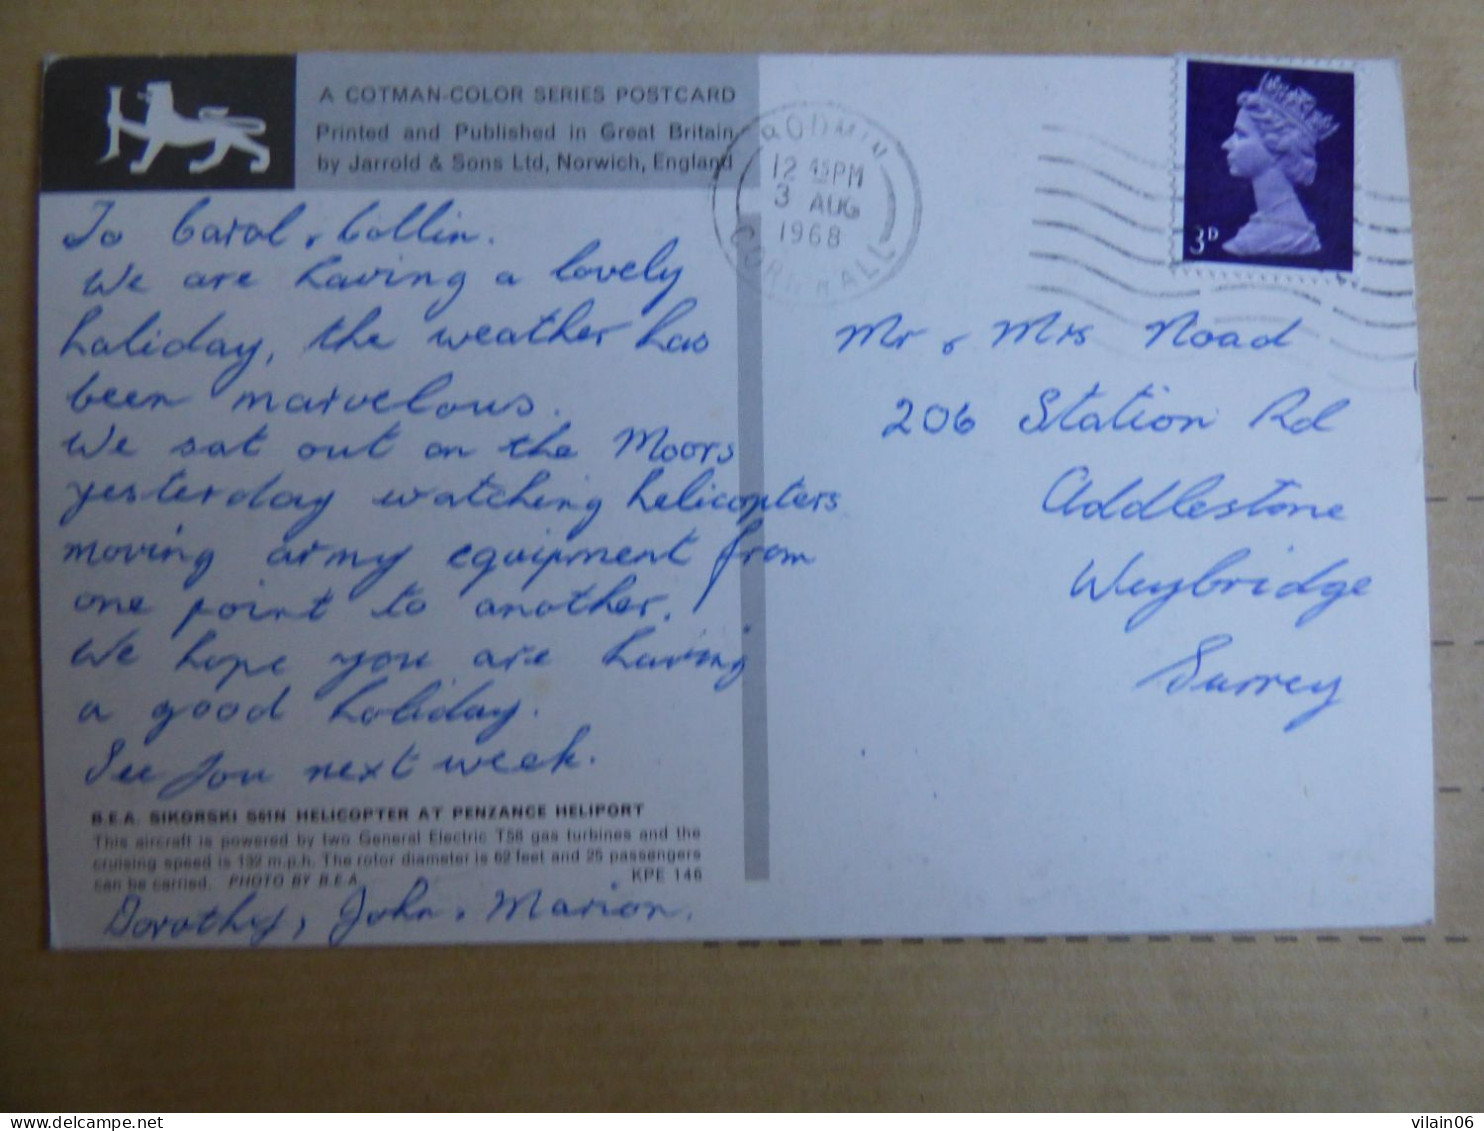 A COTMAN-COLOR SERIES POSTCARD
Printed and Published in Great Britain
by Jarrold & Sons Ltd, Norwich, England
BODMIN
12 45PM
3 AUG
1968
CORNWALL
3D
To Carol & Collin.
We are having a lovely
holiday, the weather has
been marvelous.
We sat out on the Moors
yesterday watching helicopters
moving army equipment from
one point to another.
We hope you are having
a good holiday.
See you next week.
B.E.A. SIKORSKI S61N HELICOPTER AT PENZANCE HELIPORT
This aircraft is powered by two General Electric T58 gas turbines and the
cruising speed is 132 m.p.h. The rotor diameter is 62 feet and 25 passengers
can be carried. PHOTO BY B.E.A.
KPE 146
Dorothy, John, Marion.
Mr & Mrs Noad
206 Station Rd
Addlestone
Weybridge
Surrey
vilain06